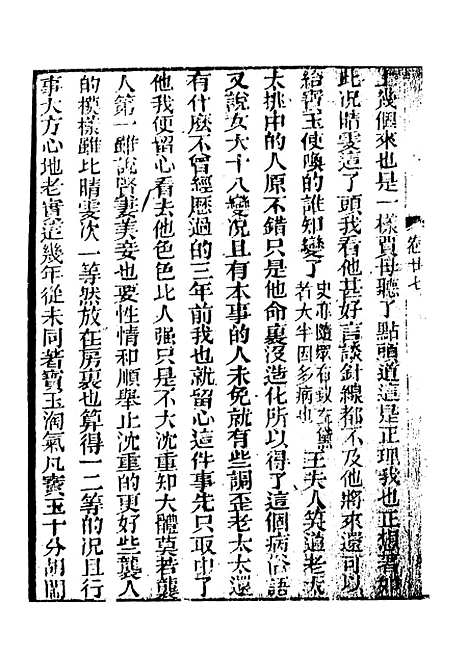 幾個來也是一樣賈母聽了點頭道這是正理我也正想著如
此况晴雯這丫頭我看他甚好言談針線都不及他將來還可以
給寶玉使喚的誰知變了
史亦隨衆有
者大半因多病也
王夫人笑道老太
太挑中的人原不錯只是他命裏沒造化所以得了這個病俗語
又說女大十八變况且有本事的人未免就有些調歪老太太還
有什麽不曾經歷過的三年前我也就留心這件事先只取中了
他我便留心看去他色色比人强只是不大沈重知大體莫若襲
人第一雖說賢妻美妾也要性情和順舉止沈重的更好些襲人
的模樣雖比晴雯次一等然放在房裏也算得一二等的况且行
事大方心地老實這幾年從未同著寶玉淘氣凡寶玉十分胡鬧
卷廿七